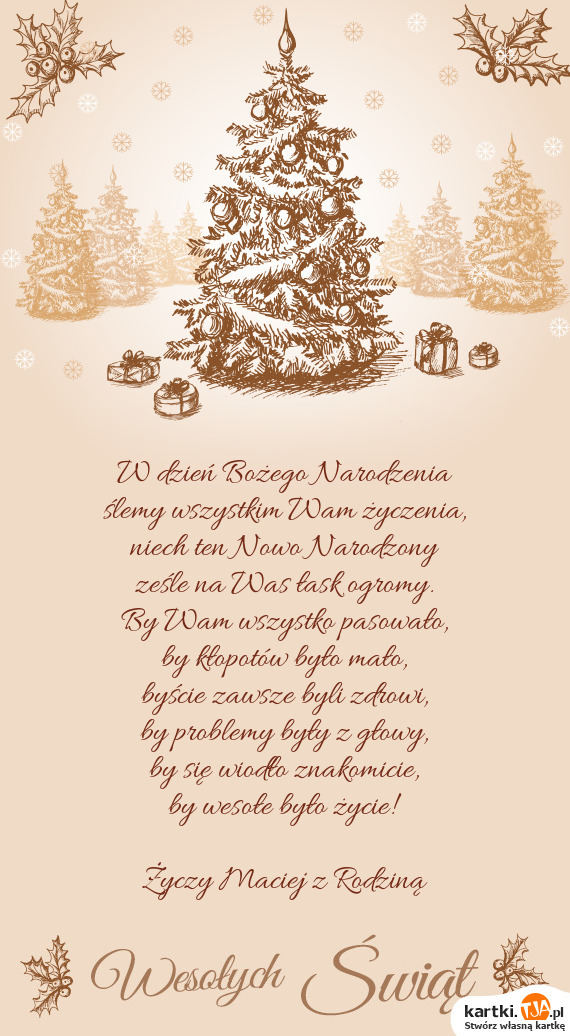 W dzień Bożego Narodzenia
ślemy wszystkim Wam życzenia,
niech ten Nowo Narodzony
ześle na Was łask ogromy.
By Wam wszystko pasowało,
by kłopotów było mało,
byście zawsze byli zdrowi,
by problemy były z głowy,
by się wiodło znakomicie,
by wesołe było życie!
Życzy Maciej z Rodziną
Wesołych Świąt
kartki.TJA.pl
Stwórz własną kartkę